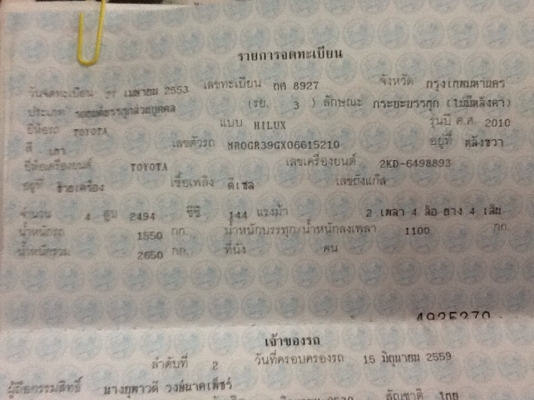 รายการจดทะเบียน
วันจดทะเบียน เมษายน 2553 เลขทะเบียน ถศ 8927 จังหวัด กรุงเทพมหานคร
ประเภท รถยนต์บรรทุกส่วนบุคคล (รย. 3 ) ลักษณะ กระบะบรรทุก (ไม่มีหลังคา)
ยี่ห้อรถ TOYOTA แบบ HILUX รุ่นปี ค.ศ. 2010
สี เทา เลขตัวรถ MR0GR39GX06615210 อยู่ที่ ตลิ่งขวา
ยี่ห้อเครื่องยนต์ TOYOTA เลขเครื่องยนต์ 2KD-6498893
อยู่ที่ ซ้ายเครื่อง เชื้อเพลิง ดีเซล เลขถังแก๊ส
จำนวน 4 สูบ 2494 ซีซี 144 แรงม้า 2 เพลา 4 ล้อ ยาง 4 เส้น
น้ำหนักรถ 1550 กก. น้ำหนักบรรทุก/น้ำหนักลงเพลา 1100 กก.
น้ำหนักรวม 2650 กก. ที่นั่ง คน
4925270
เจ้าของรถ
ลำดับที่ 2 วันที่ครอบครองรถ 15 มิถุนายน 2559
ผู้ถือกรรมสิทธิ์ นางยุพาวดี วงษ์นาคเพ็ชร์
สัญชาติ ไทย